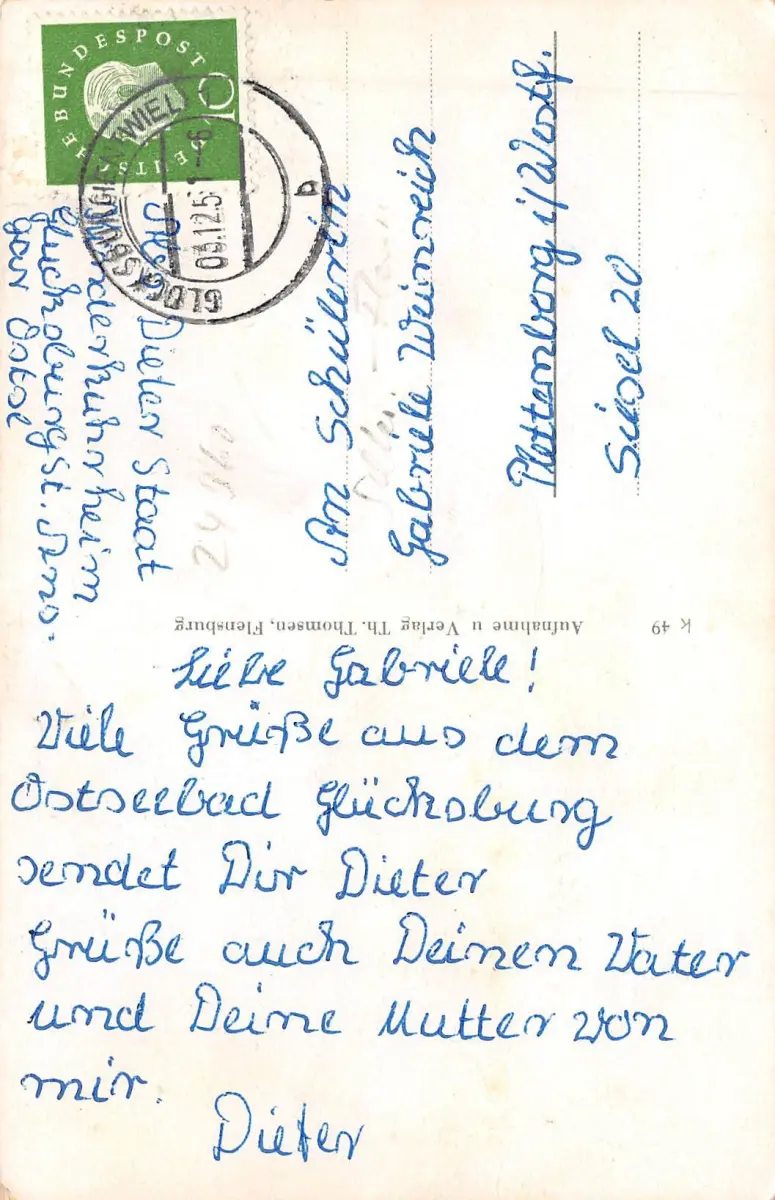 DEUTSCHE BUNDESPOST
10
GLÜCKSBURG
b
Dieter Staat
Kinderkurheim
Glücksburg
Ostse
24
An Schülerin
Gabriele Weinreich
Plettenberg i/Westf.
Siesel 20
K 49 Aufnahme u Verlag Th. Thomsen, Flensburg
Liebe Gabriele!
Viele Grüße aus dem
Ostseebad Glücksburg
sendet Dir Dieter
Grüße auch Deinen Vater
und Deine Mutter von
mir.
Dieter